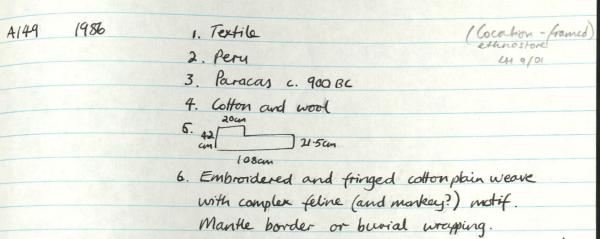 A149 1986 1. Textile (Location - framed)
ethnostore
2. Peru
3. Paracas c. 900 BC
4. Cotton and wool
20cm
5. 42 cm 21.5cm
108cm
6. Embroidered and fringed cotton plain weave
with complex feline (and monkey?) motif.
Mantle border or burial wrapping.